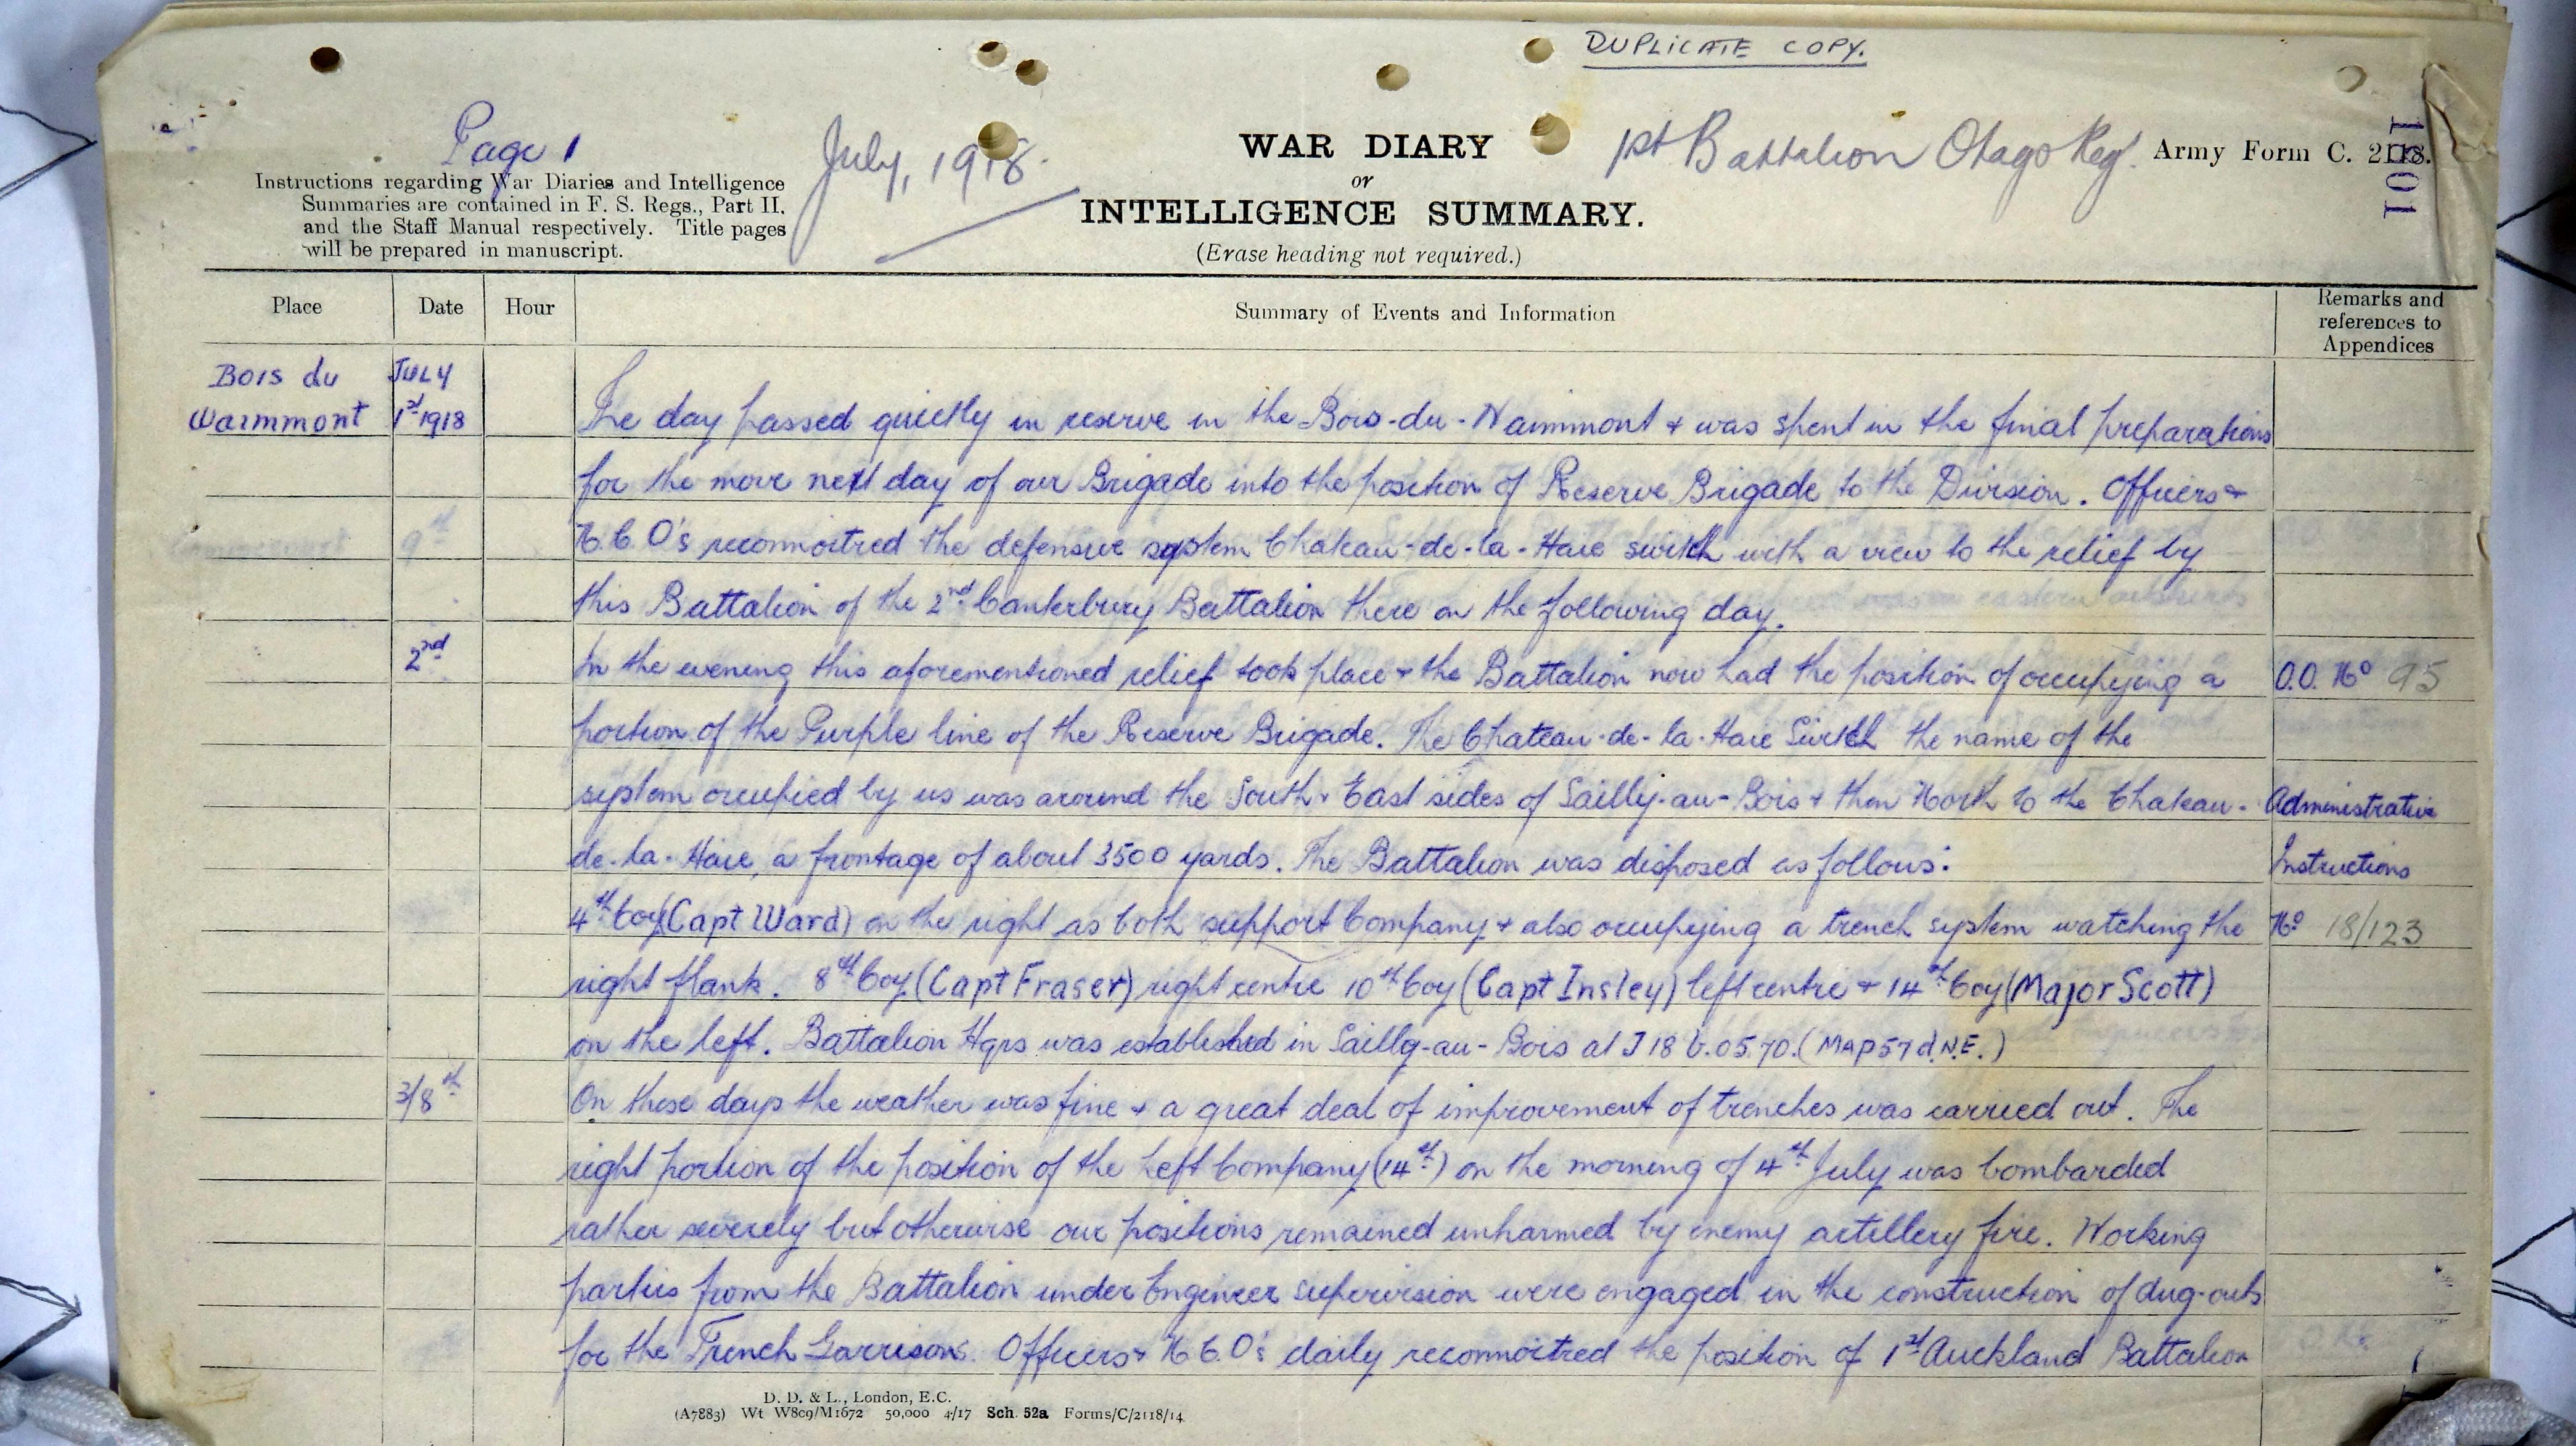 DUPLICATE COPY.
Page 1
July, 1918.
WAR DIARY
or
INTELLIGENCE SUMMARY.
(Erase heading not required.)
1st Battalion Otago Regt.
Army Form C. 2118.
Instructions regarding War Diaries and Intelligence
Summaries are contained in F. S. Regs., Part II.
and the Staff Manual respectively. Title pages
will be prepared in manuscript.
Place Date Hour Summary of Events and Information Remarks and references to Appendices
Bois du JULY
Warmmont 1st 1918 The day passed quietly in reserve in the Bois-du-Warmmont & was spent in the final preparations
for the move next day of our Brigade into the position of Reserve Brigade to the Division. Officers &
N.C.O's reconnoitred the defensive system Chateau-de-la-Haie switch with a view to the relief by
this Battalion of the 2nd Canterbury Battalion there on the following day.
2nd In the evening this aforementioned relief took place & the Battalion now had the position of occupying a O.O. No 95
portion of the Purple line of the Reserve Brigade. The Chateau-de-la-Haie Switch the name of the
system occupied by us was around the South & East sides of Sailly-au-Bois & then North to the Chateau- Administrative
de-la-Haie, a frontage of about 3500 yards. The Battalion was disposed as follows: Instructions
4th Coy (Capt Ward) on the right as both support Company & also occupying a trench system watching the No 18/123
right flank. 8th Coy (Capt Fraser) right centre 10th Coy (Capt Insley) left centre & 14th Coy (Major Scott)
on the left. Battalion Hqrs was established in Sailly-au-Bois at J 18 b.05.70. (MAP 57d N.E.)
3/8th On these days the weather was fine & a great deal of improvement of trenches was carried out. The
right portion of the position of the Left Company (14th) on the morning of 4th July was bombarded
rather severely but otherwise our positions remained unharmed by enemy artillery fire. Working
parties from the Battalion under Engineer supervision were engaged in the construction of dug-outs
for the Trench Garrisons. Officers & N.C.O's daily reconnoitred the position of 1st Auckland Battalion
D. D. & L., London, E.C.
(A7883) Wt W809/M1672 50,000 4/17 Sch. 52a Forms/C/2118/14